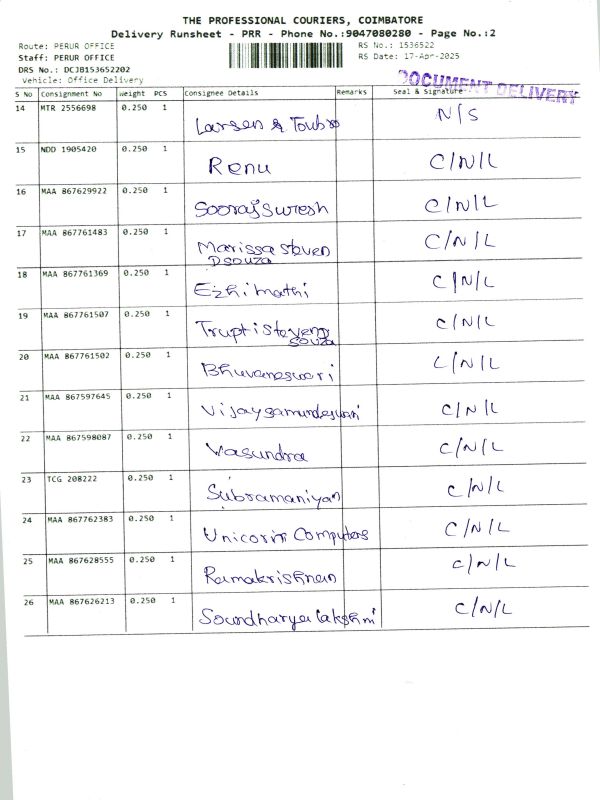 THE PROFESSIONAL COURIERS, COIMBATORE
Delivery Runsheet - PRR - Phone No.:9047080280 - Page No.:2
Route: PERUR OFFICE
RS No.: 1536522
Staff: PERUR OFFICE
RS Date: 17-Apr-2025
DRS No.: DCJB153652202
Vehicle: Office Delivery
DOCUMENT DELIVERY
S No Consignment No Weight PCS Consignee Details Remarks Seal & Signature
14 MTR 2556698 0.250 1 Larsen & Toubro N/S
15 NDD 1905420 0.250 1 Renu C/N/L
16 MAA 867629922 0.250 1 Sooraj Suresh C/N/L
17 MAA 867761483 0.250 1 Marissa Steven C/N/L
Dsouza
18 MAA 867761369 0.250 1 Ezhimathi C/N/L
19 MAA 867761507 0.250 1 Trupti Steven D C/N/L
souza
20 MAA 867761502 0.250 1 Bhuvaneswari L/N/L
21 MAA 867597645 0.250 1 Vijaysamundeswari C/N/L
22 MAA 867598087 0.250 1 Vasundra C/N/L
23 TCG 208222 0.250 1 Subramaniyan C/N/L
24 MAA 867762383 0.250 1 Unicorn Computers C/N/L
25 MAA 867628555 0.250 1 Ramakrishnan C/N/L
26 MAA 867626213 0.250 1 Soundharya lakshmi C/N/L